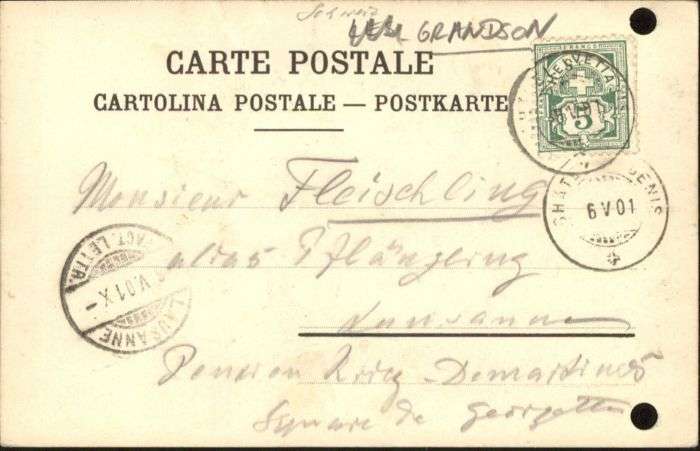 Schweiz
GRANDSON
CARTE POSTALE
CARTOLINA POSTALE — POSTKARTE
HELVETIA
FRANCO
5
6 V 01
Monsieur Fleischling
alias Pflänzling
Lausanne
Pension Krieg-Demartines
Square de Georgette
FACT. LETTR.
V. 01 X –
LAUSANNE